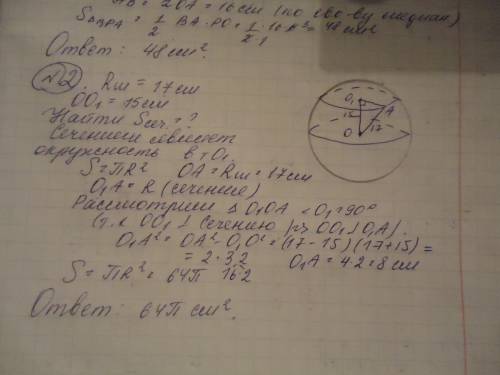 AB = 2OA = 16 см (по св-ву медиан)
S = 1/2 BA · PO = 1/2 · 16 · = 48 см²
Ответ: 48 см².
№2. Rш = 17 см
OO₁ = 15 см
Найти Sсеч. = ?
Сечением является
окружность в т O₁
S = πR² OA = Rш = 17 см
O₁A = R (сечение)
Рассмотрим Δ O₁OA < O₁ = 90°
(т.к OO₁ ⊥ сечению OO₁ ⊥ O₁A).
O₁A² = OA² - O₁O² = (17-15)(17+15) =
= 2·32 O₁A = 4·2 = 8 см
16·2
S = πR² = 64π
Ответ: 64π см².
O₁
15
A
O
17